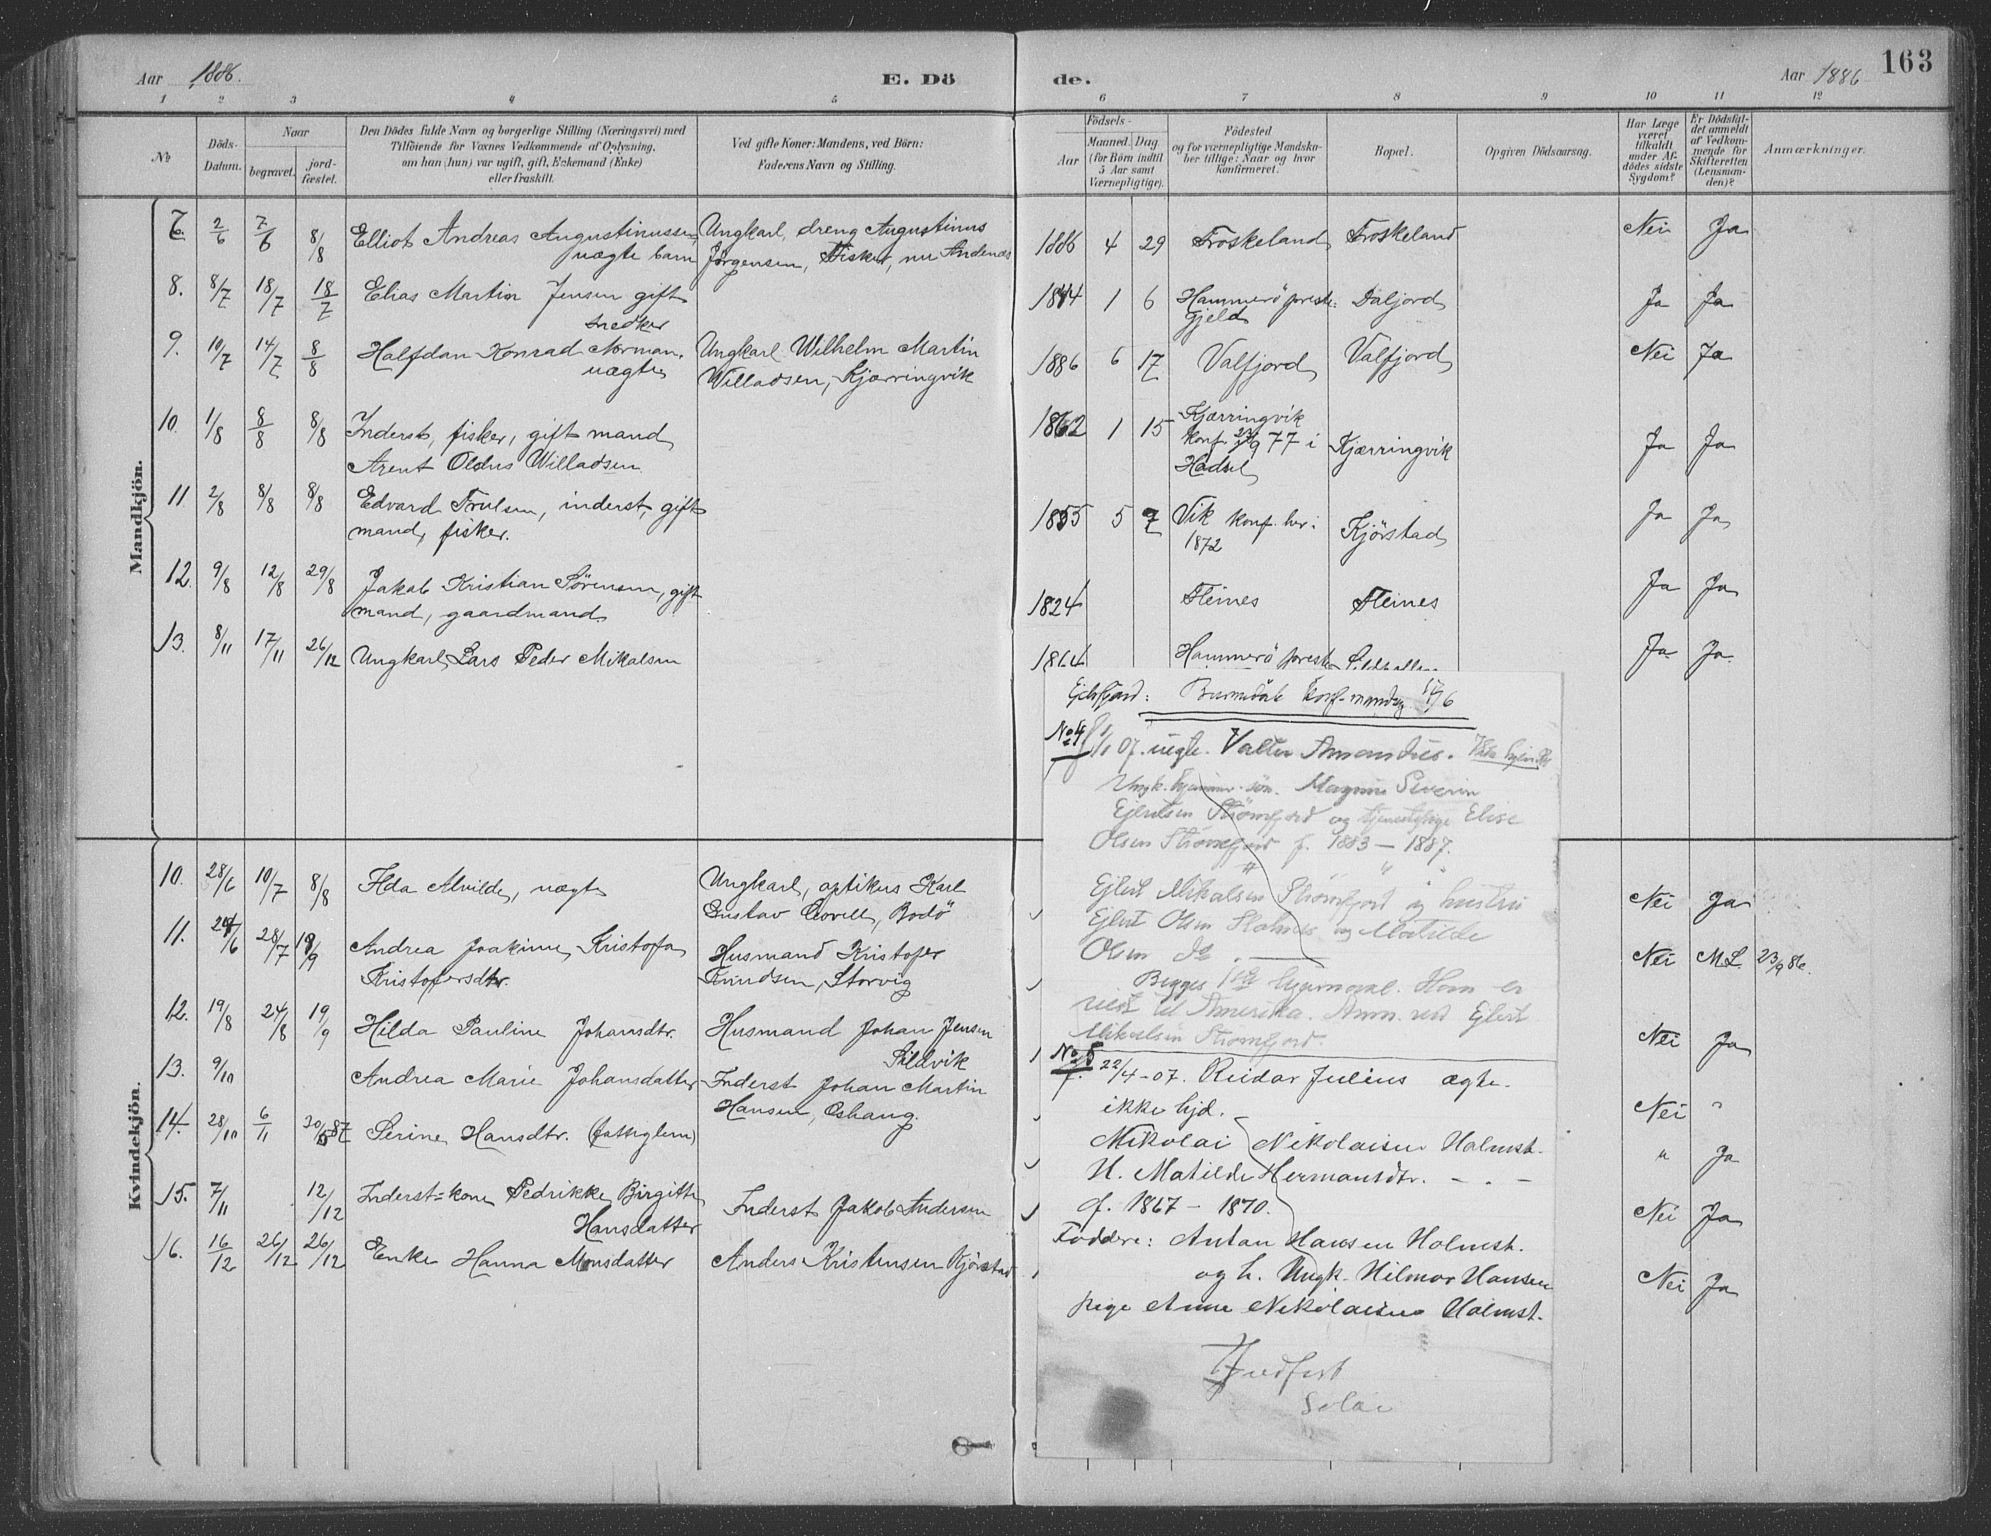 Aar 1886.
E. Dö
1 2 3 4 5
№
Döds-
Datum.
Naar
begravet.
jord-
fæstet.
Den Dödes fulde Navn og borgerlige Stilling (Næringsvei) med
Tilföiende for Voxnes Vedkommende af Oplysning,
om han (hun) var ugift, gift, Enkemand (Enke)
eller fraskilt.
Ved gifte Koner: Mandens, ved Börn:
Faderens Navn og Stilling.
Mandkjön.
7. 2/6 7/6 8/8 Elliot Andreas Augustinussen, Ungkarl, dreng Augustinus
uægte barn Jørgensen, Fisker, nu Andenæs
8. 8/7 18/7 18/7 Elias Martin Jensen gift
snedker
9. 10/7 14/7 8/8 Halfdan Konrad Norman, Ungkarl Wilhelm Martin
uægte Willadsen, Kjærringvik
10. 1/8 8/8 8/8 Inderst, fisker, gift mand
Arent Olaus Willadsen
11 2/8 8/8 8/8 Edvard Trulsen, inderst, gift
mand, fisker.
12. 9/8 12/8 29/8 Jakob Kristian Sörensen, gift
mand, gaardmand
13. 8/11 17/11 26/12 Ungkarl Lars Peder Mikalsen
Kvindekjön.
10. 28/6 10/7 8/8 Alvilde, uægte Ungkarl, optikus Karl
Gustav Bodö
11. 28/7 Andrea Joakime Kristofa Husmand Kristofer
Kristofersdtr. Knudsen, Storvig
12. 19/8 24/8 19/9 Hilda Pauline Johansdtr. Husmand Johan Jensen
Sildvik
13. 9/10 Andrea Marie Johansdatter Inderst Johan Martin
Hansen, Oshaug.
14. 28/10 6/11 Serine Hansdtr. (fattiglem)
15. 7/11 12/12 Inderst-kone Fedrikke Birgitte Inderst Jakob Andersen
Hansdatter
16. 16/12 26/12 26/12 Enke Hanna Monsdatter Anders Kristensen Kjörstad
de.
Aar 1886 163
6 7 8 9 10 11 12
Födsels-
Aar
Maaned. Dag.
(for Börn indtil
5 Aar samt
Værnepligtige).
Födested
og for værnepligtige Mandska-
ber tillige: Naar og hvor
konfirmeret.
Bopæl.
Opgiven Dödsaarsag.
Har Læge
været
tilkaldt
under Af-
dödes sidste
Sygdom?
Er Dödsfal-
det anmeldt
af Vedkom-
mende for
Skifteretten
(Lensman-
den)?
Anmærkninger.
1886 4 29 Froskeland Froskeland Nei Ja
1844 1 6 Hammerö preste- Daljord Ja Ja
gjeld
1886 6 17 Valfjord Valfjord Nei Ja
1862 1 15 Kjærringvik
konf. 77 i Kjærringvik Ja Ja
Hadsel
1855 5 Vik konf. her i Kjörstad Ja Ja
1872
1824 Fleines Fleines Ja Ja
1864 Hammerö preste Ja Ja.
konf-mandag 17/6
No 4 07. uegte. Valter Amandus.
Ungk. hjemmev. søn. Magnus Severin
Ejlertsen Strömfjord og Elise
Olsen Strömfjord f. 1883 – 1887.
Ejlert Mikalsen Strömfjord og hustru
Ejlert Olsen og Matilde
Olsen do.
Begges 1ste
reist til Amerika. Anm. ved Ejlert
Mikalsen Strömfjord.
No 5
f. 22/4-07. Reidar Julius ægte.
ikke hjd.
Mikolai Nikolaisen Holmst.
H. Matilde Hermansdtr. – . –
f. 1867 – 1870.
Faddere: Anton Hansen Holmst.
og h. Ungk. Hilmar Hansen
pige Anne Nikolaisen Holmst.
Nei Ja
Nei ML 23/9 86.
Nei Ja
Nei "
" Ja
Nei Ja
Nei Ja